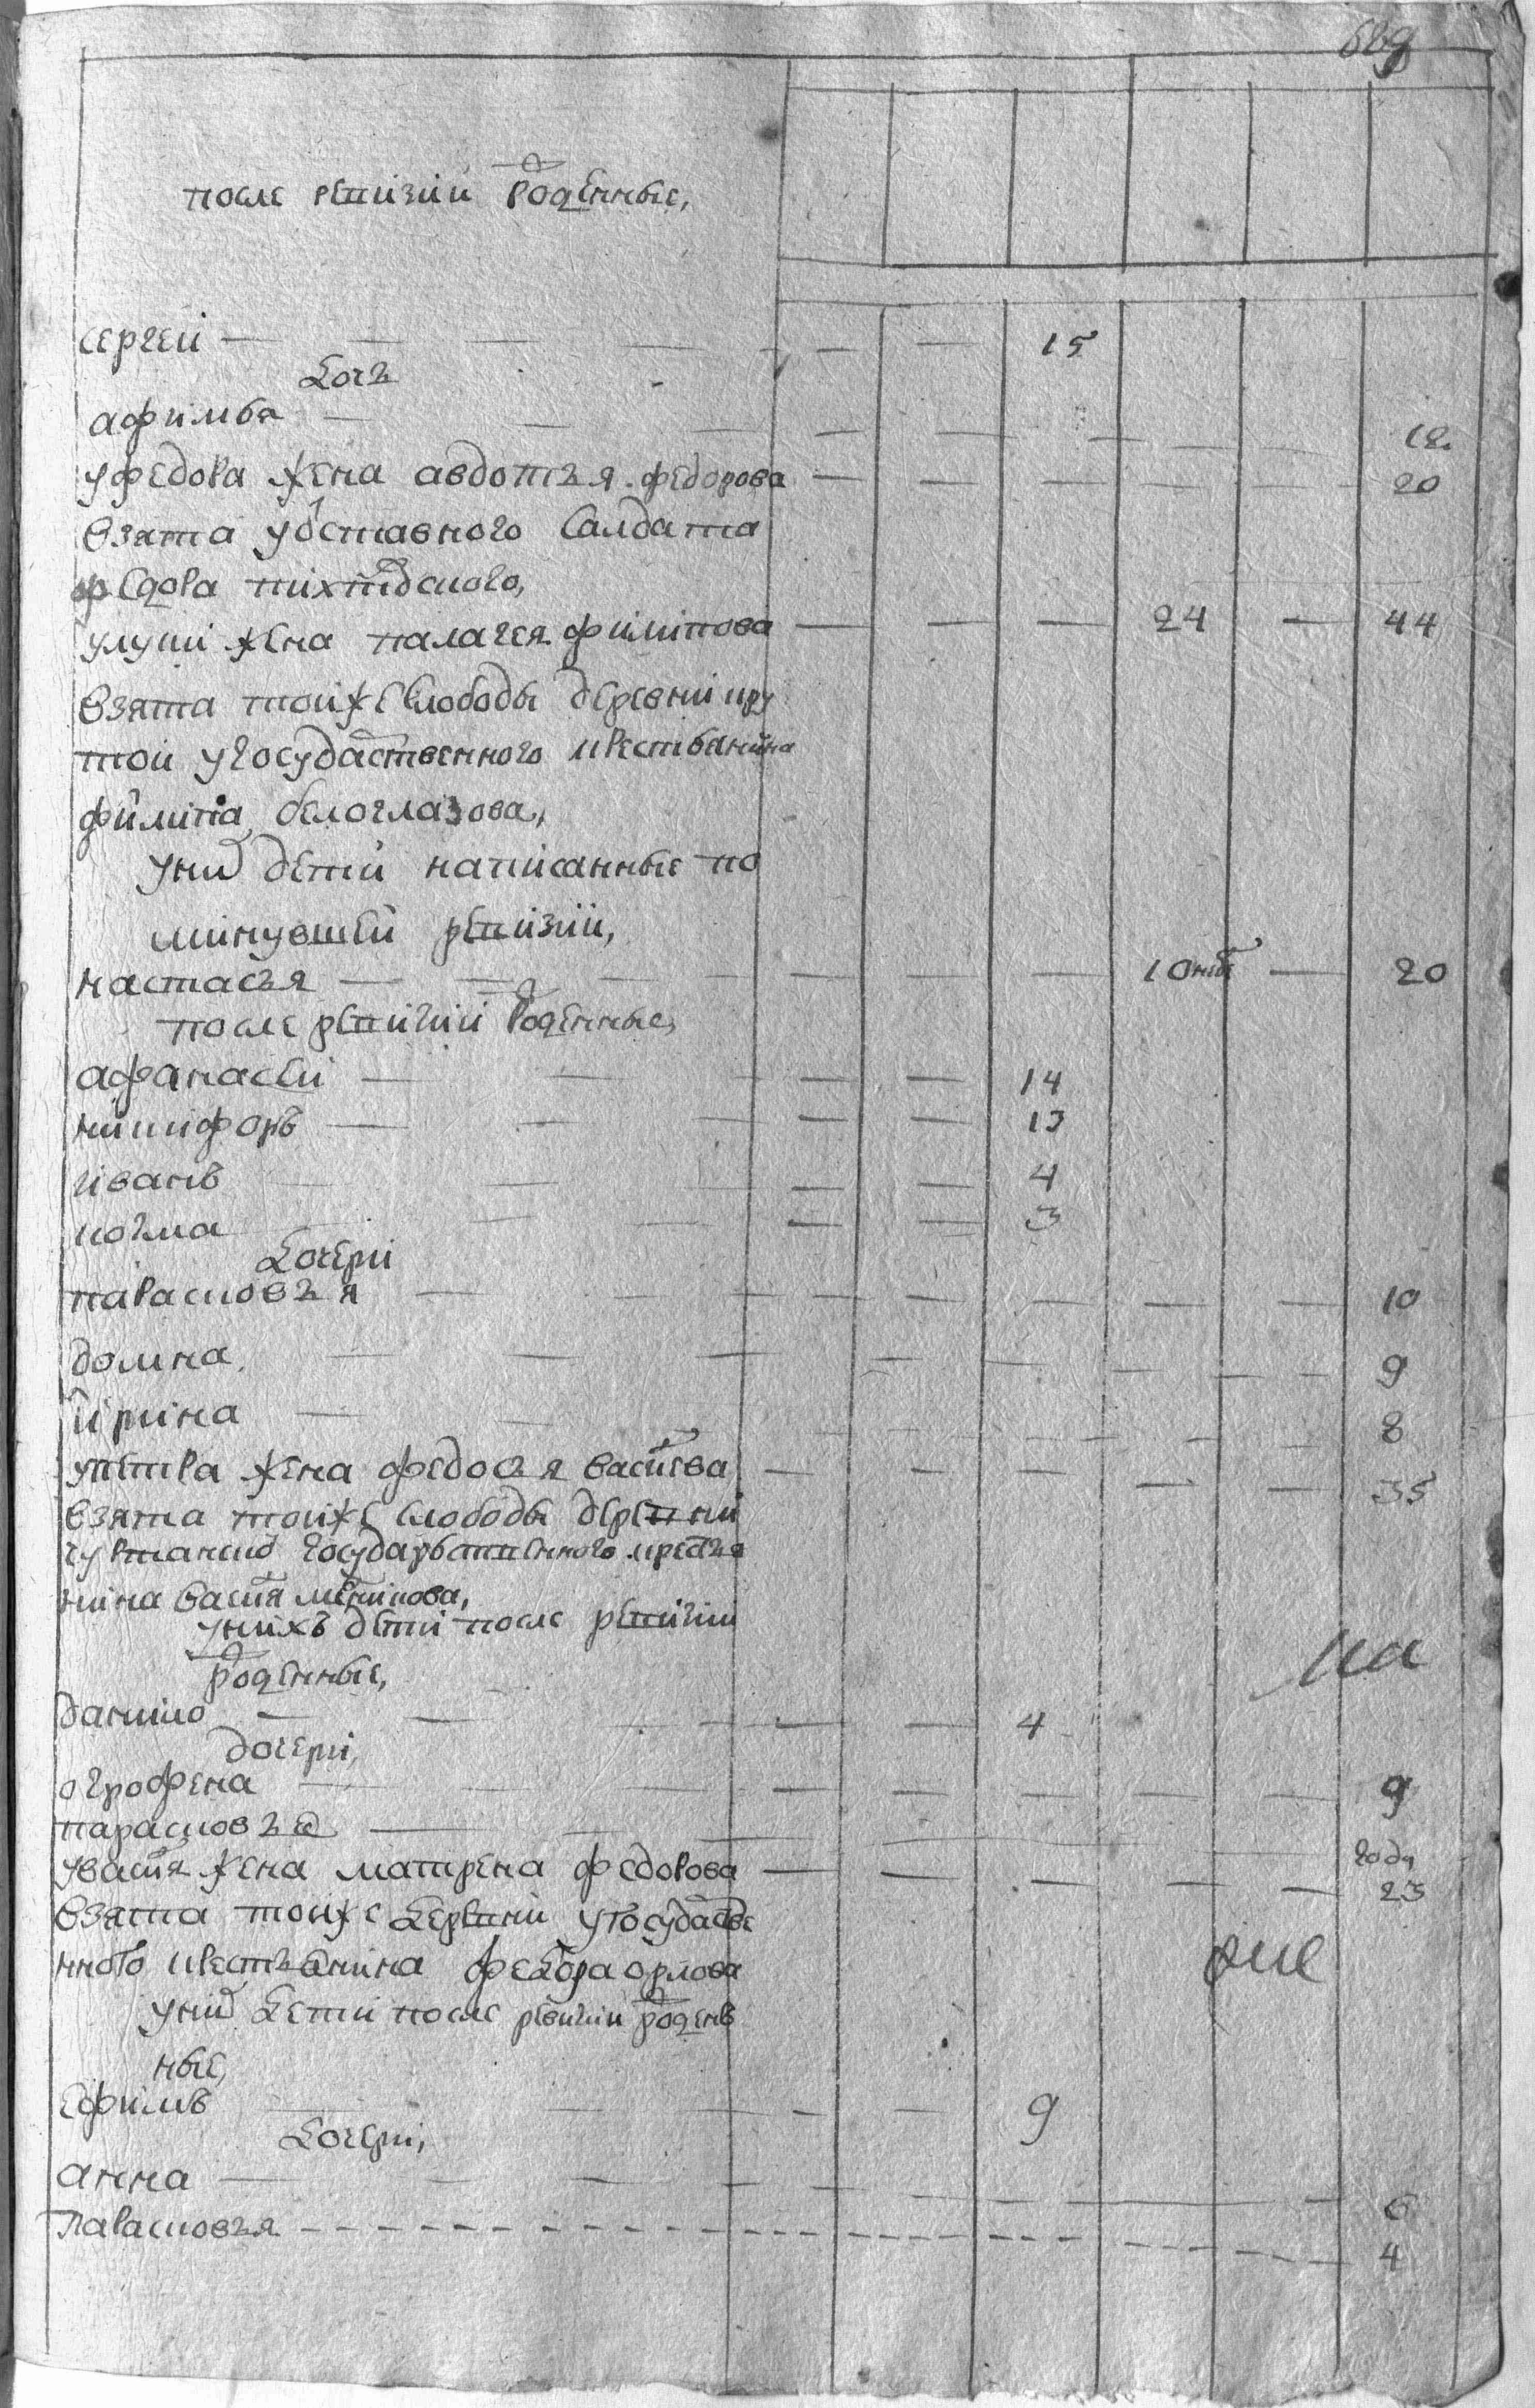 689
после ревизии рожденные,
сергей — — — — — — 15
дочь
афимья — — — — — — 12
у федора жена авдотья федорова — — — — — 20
взята у отставного салдата
федора
у луки жена палагея филипова — — — 24 — 44
взята тойже слободы деревни кру
той у государственного крестьянина
филипа белоглазова,
у них дети написанные по
минувшей ревизии,
настасья — — — — — 10 — 20
после ревизии рожденные,
афанасей — — — — 14
никифоръ — — — — 13
иванъ — — — — 4
козма — — — — 3
дочери
парасковья — — — — — — 10
домна — — — — — — 9
ирина — — — — — — 8
у петра жена федосья васильева — — — — — 35
взята тойже слободы деревни
государственного крестья
нина василья
у нихъ дети после ревизии
рожденные,
данило — — — — — 4
на
дочери,
огрофена — — — — — — 9
парасковья — — — — году
у василья жена матрена федорова — — — — — 23
взята тойже деревни у государстве
нного крестьянина федора орлова
у них дети после ревизии рожден
ные,
ефимъ — — — — 9
дочери,
анна — — — — — — 6
парасковья — — — — — — 4